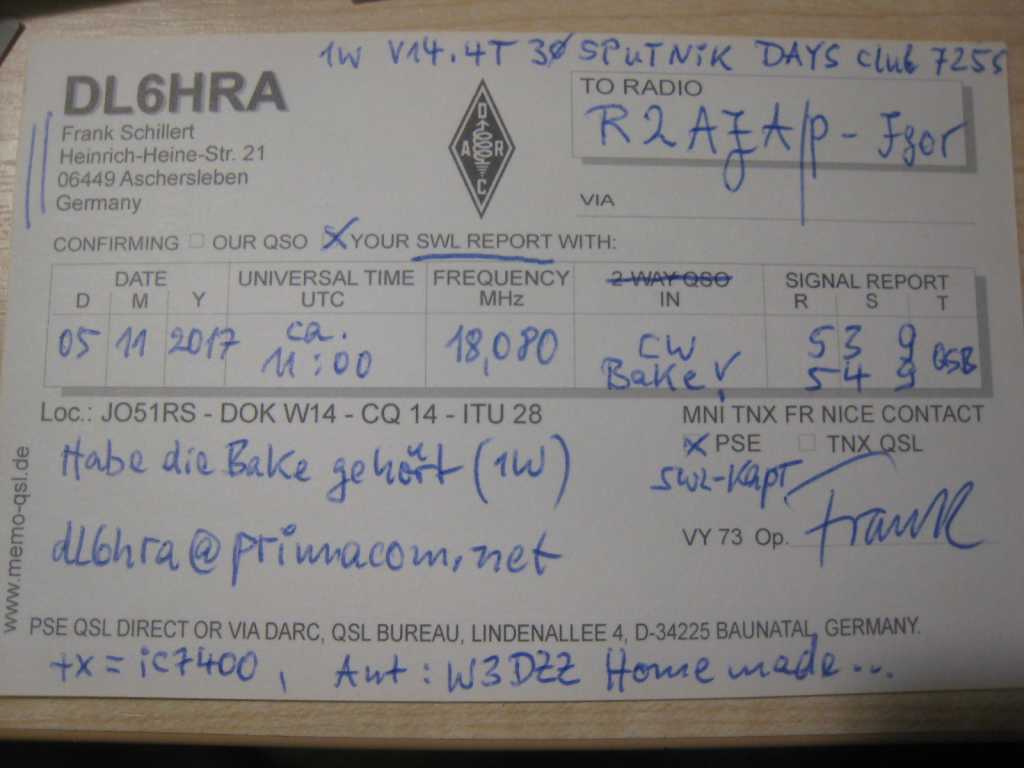 1W V14.4T 3Ø SPUTNiK DAYS Club 7255
DL6HRA
Frank Schillert
Heinrich-Heine-Str. 21
06449 Aschersleben
Germany
D
A R
C
TO RADIO
R2AZA/p - Igor
VIA
CONFIRMING ☐ OUR QSO ☒ YOUR SWL REPORT WITH:
DATE UNIVERSAL TIME FREQUENCY 2-WAY QSO SIGNAL REPORT
D M Y UTC MHz IN R S T
05 11 2017 ca. 11:00 18,080 CW 5 3 9 QSB
Bake! 5 4 9
Loc.: JO51RS - DOK W14 - CQ 14 - ITU 28
MNI TNX FR NICE CONTACT
☒ PSE ☐ TNX QSL
Habe die Bake gehört (1W)
SWL-Kart
dl6hra@primacom.net
VY 73 Op. Frank
www.memo-qsl.de
PSE QSL DIRECT OR VIA DARC, QSL BUREAU, LINDENALLEE 4, D-34225 BAUNATAL, GERMANY.
tx = iC7400, Ant: W3DZZ Home made...